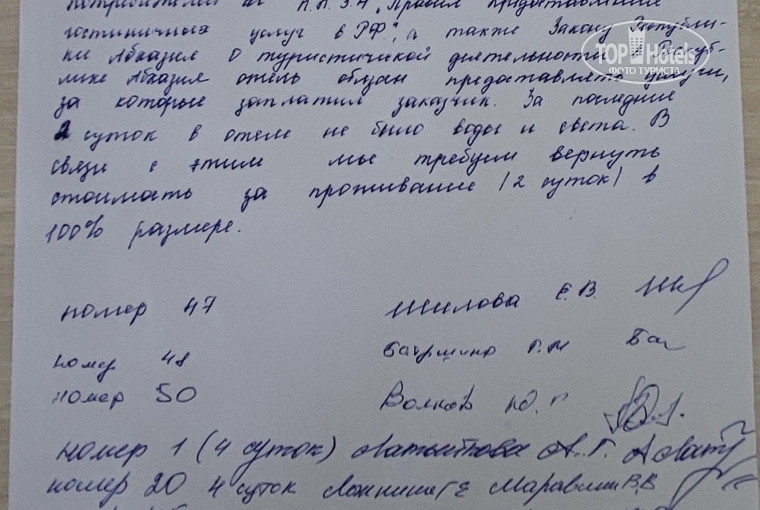 потребителей п.п. 3.4 "Правил предоставления
гостиничных услуг в РФ", а также Закону Республи-
ки Абхазия О туристической деятельности в Респуб-
лике Абхазия отель обязан предоставлять услуги,
за которые заплатил заказчик. За последние
2 суток в отеле не было воды и света. В
связи с этим мы требуем вернуть
стоимость за проживание (2 суток) в
100% размере.
номер 47 Шилова Е.В.
номер 48
номер 50 Волков Ю.Г.
номер 1 (4 суток) А.Г.
номер 20 4 суток В.В
TOPHotels
ФОТО ТУРИСТА